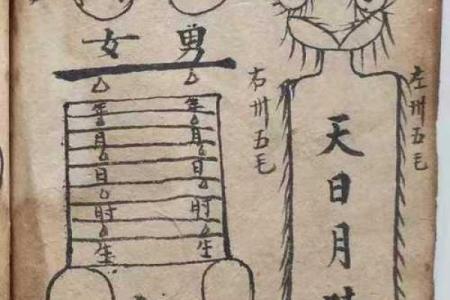 左卅五毛
天日月
右卅五毛
男
年月日时生
女
年月日时生